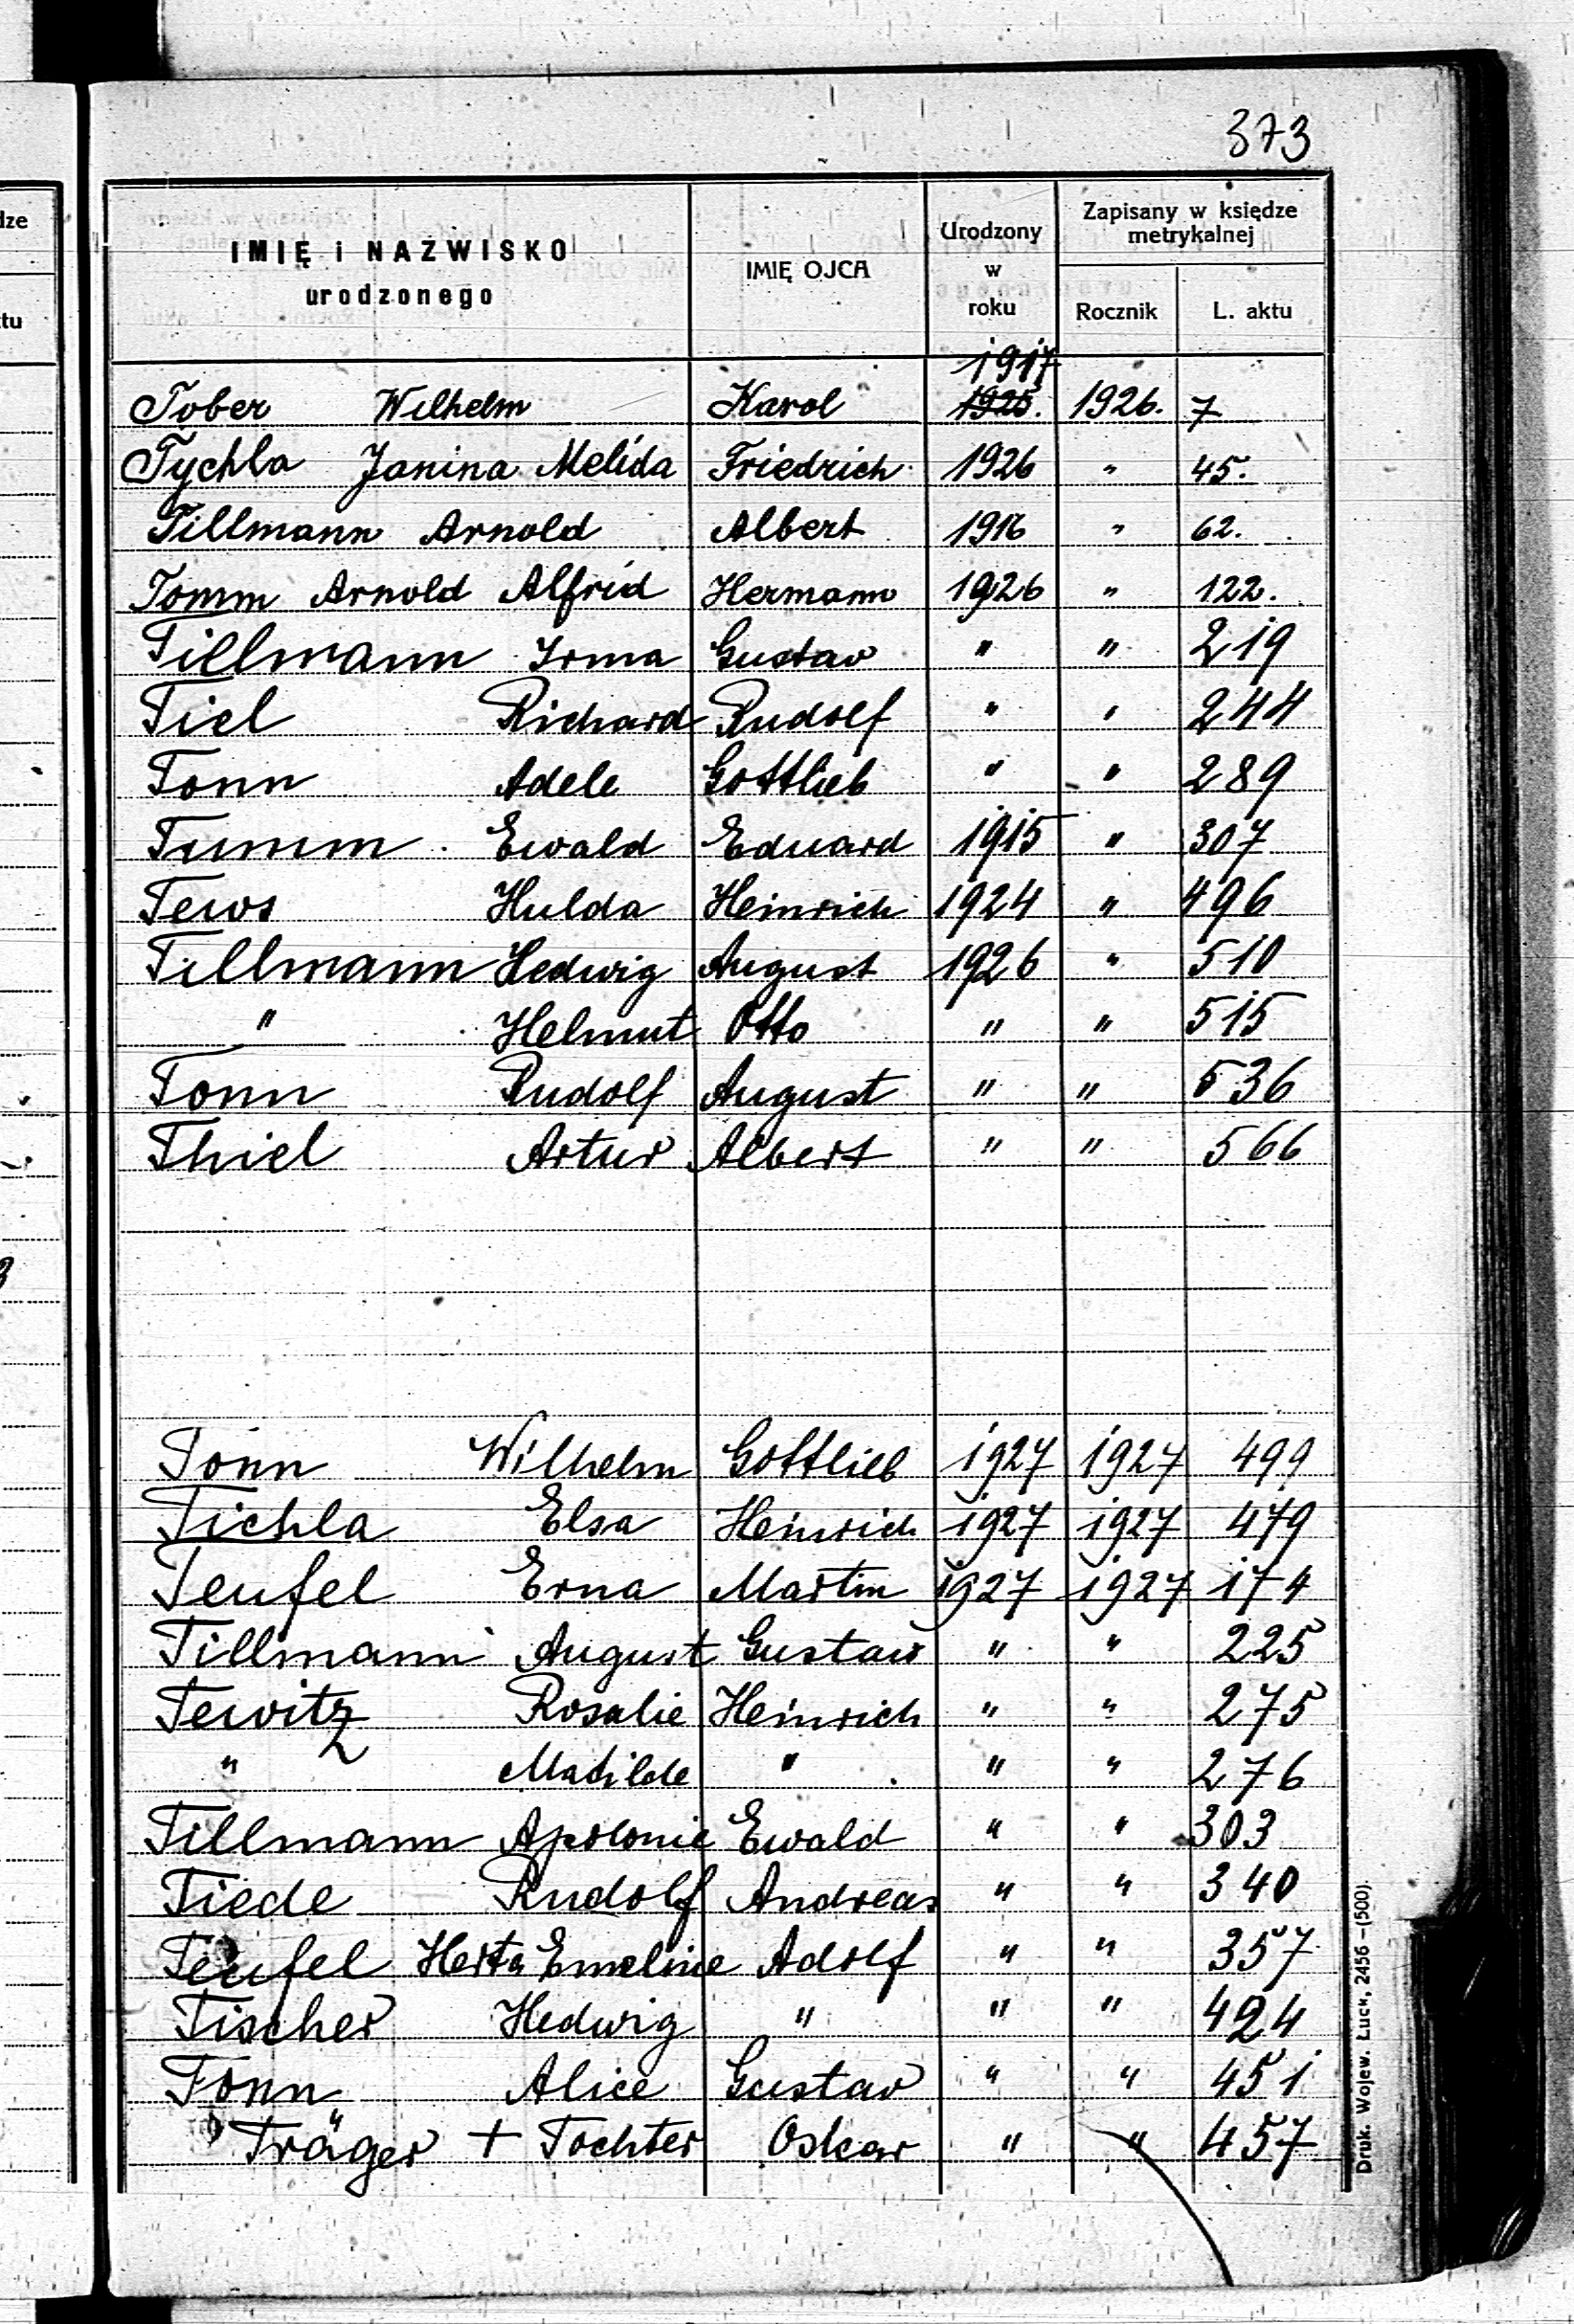 373
IMIĘ i NAZWISKO urodzonego IMIĘ OJCA Urodzony w roku Zapisany w księdze metrykalnej
Rocznik L. aktu
1917
Tober Wilhelm Karol 1925. 1926. 7
Tychla Janina Melida Friedrich 1926 " 45.
Tillmann Arnold Albert 1916 " 62.
Tomm Arnold Alfrid Hermann 1926 " 122.
Tillmann Irma Gustav " " 219
Tiel Richard Rudolf " " 244
Tonn Adele Gottlieb " " 289
Tumm Ewald Eduard 1915 " 307
Tews Hulda Heinrich 1924 " 496
Tillmann Hedwig August 1926 " 510
" Helmut Otto " " 515
Tonn Rudolf August " " 536
Thiel Artur Albert " " 566
Tonn Wilhelm Gottlieb 1927 1927 499
Tichla Elsa Heinrich 1927 1927 479
Teufel Erna Martin 1927 1927 174
Tillmann August Gustaw " " 225
Tewitz Rosalie Heinrich " " 275
" Matilde " " " 276
Tillmann Apolonie Ewald " " 303
Tiede Rudolf Andreas " " 340
Teufel Herta Emeline Adolf " " 357
Tischer Hedwig " " " 424
Tonn Alice Gustav " " 451
Träger + Tochter Oskar " " 457
Druk. Wojew. Łuck, 2456 –(500).
dze
ktu
3